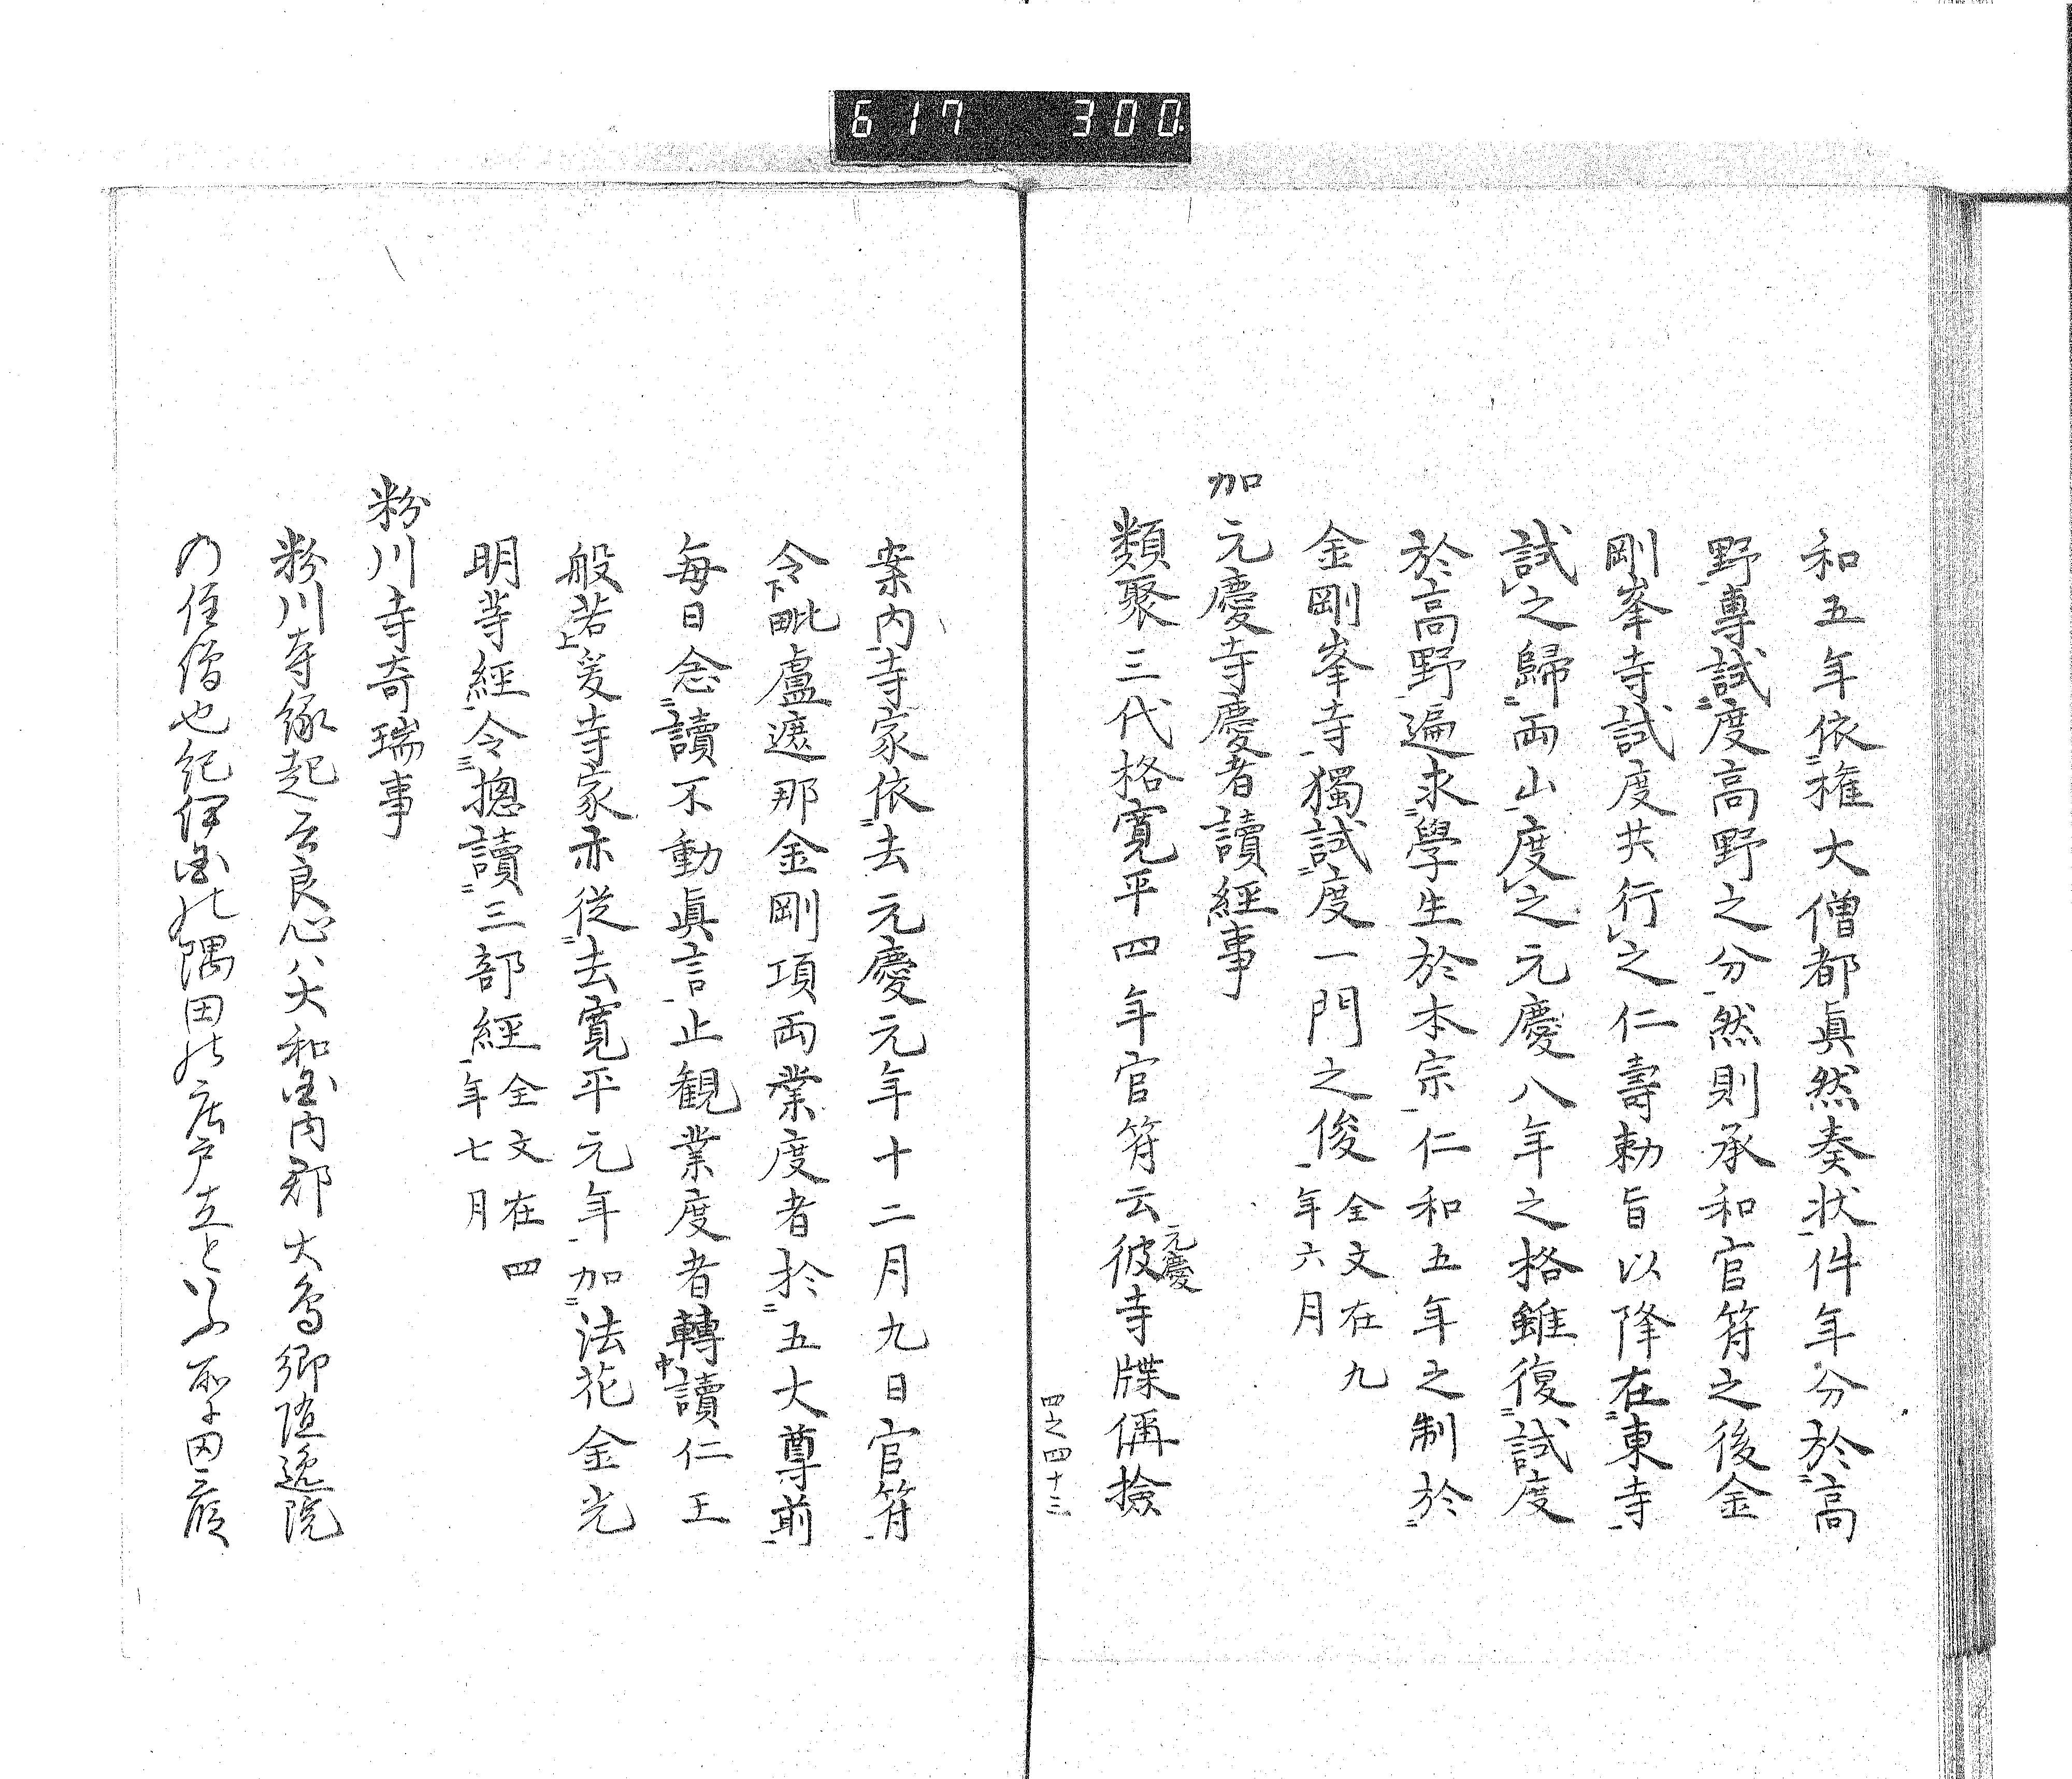 617 300.
和五年依権大僧都眞然奏状件年分於高
野專試度高野之分然則承和官符之後金
剛峯寺試度共行之仁壽勅旨以降在東寺
試之歸両山度之元慶八年之格雖復試度
於高野遍求學生於本宗仁和五年之制於
金剛峯寺獨試度一門之俊 全文在九
年六月
加 元慶寺慶者讀經事
類聚三代格寛平四年官符云彼寺牒偁撿
元慶
四之四十三
案内寺家依去元慶元年十二月九日官符
令下毗盧遮那金剛頂両業度者於五大尊前
毎日念讀不動眞言止観業度者轉中讀仁王
般若上爰寺家亦従去寛平元年加法花金光
明等經令摠讀三部經 全文在四
年七月
粉川寺奇瑞事
粉川寺縁起云良心ハ大和国内郡大鳥郷隠逸院
の住僧也紀伊国の隅田の